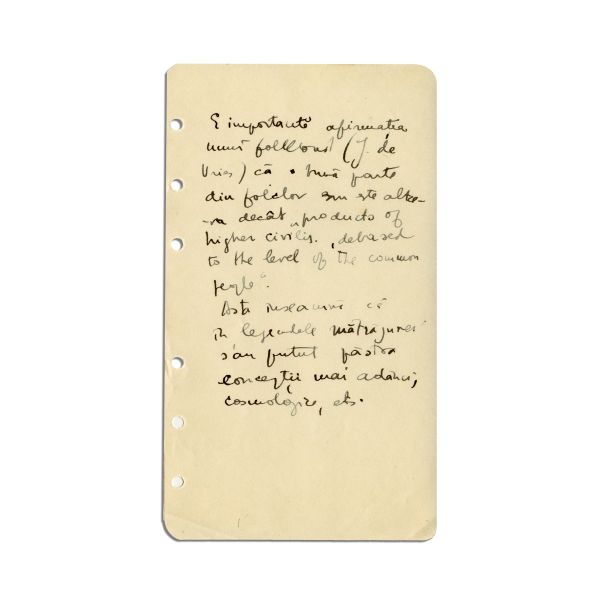 E importantă afirmația
unui folklorist (J. de
Vries) că o bună parte
din folclor nu este altce-
va decât „products of
higher civilis. „debased
to the level of the common
people".
Asta înseamnă că
în legendele mătrăgunei
s'au putut păstra
concepții mai adânci,
cosmologice, etc.